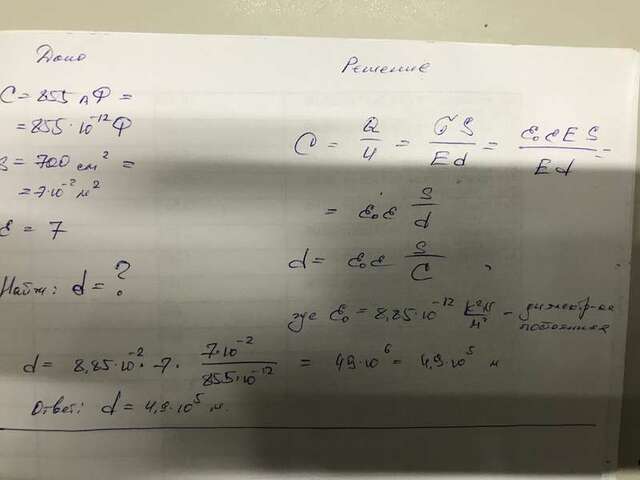 Дано
C = 855 пФ =
= 855 · 10⁻¹² Ф
S = 700 см² =
= 7·10⁻² м²
ε = 7
Найти: d = ?
Решение
C = Q/U = σS/Ed = ε₀εES/Ed =
= ε₀ε S/d
d = ε₀ε S/C ,
где ε₀ = 8,85·10⁻¹²
постоянная
d = 8,85·10⁻² · 7 · 7·10⁻²/855·10⁻¹² = 49·10⁶ = 4,9·10⁵ м
Ответ: d = 4,9·10⁵ м.